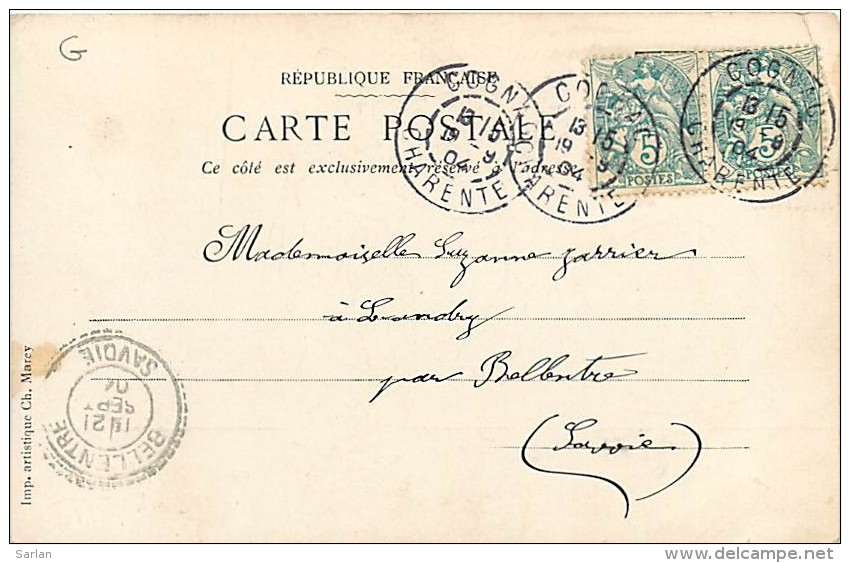 G
RÉPUBLIQUE FRANÇAISE
CARTE POSTALE
Ce côté est exclusivement réservé à l'adresse
COGNAC
13 15
19 -9
04
CHARENTE
COGNAC
13 15
19 -9
04
CHARENTE
COGNAC
13 15
19 -9
04
CHARENTE
5
POSTES
5
POSTES
Mademoiselle Suzanne Jarrier
à Landry
par Bellentre
(Savoie)
BELLENTRE
21
SEPT
04
SAVOIE
Imp. artistique Ch. Marcy
Sarlan
www.delcampe.net